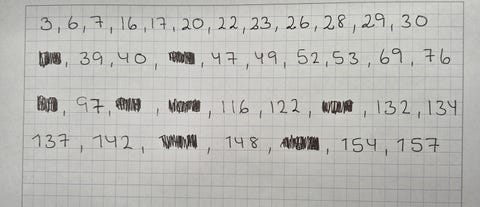 3, 6, 7, 16, 17, 20, 22, 23, 26, 28, 29, 30
, 39, 40, , 47, 49, 52, 53, 69, 76
, 97, , , 116, 122, , 132, 134
137, 142, , 148, , 154, 157